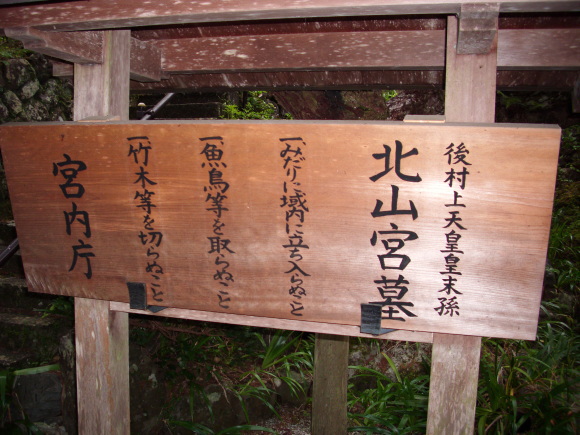 後村上天皇皇末孫
北山宮墓
一みだりに域内に立ち入らぬこと
一魚鳥等を取らぬこと
一竹木等を切らぬこと
宮内庁